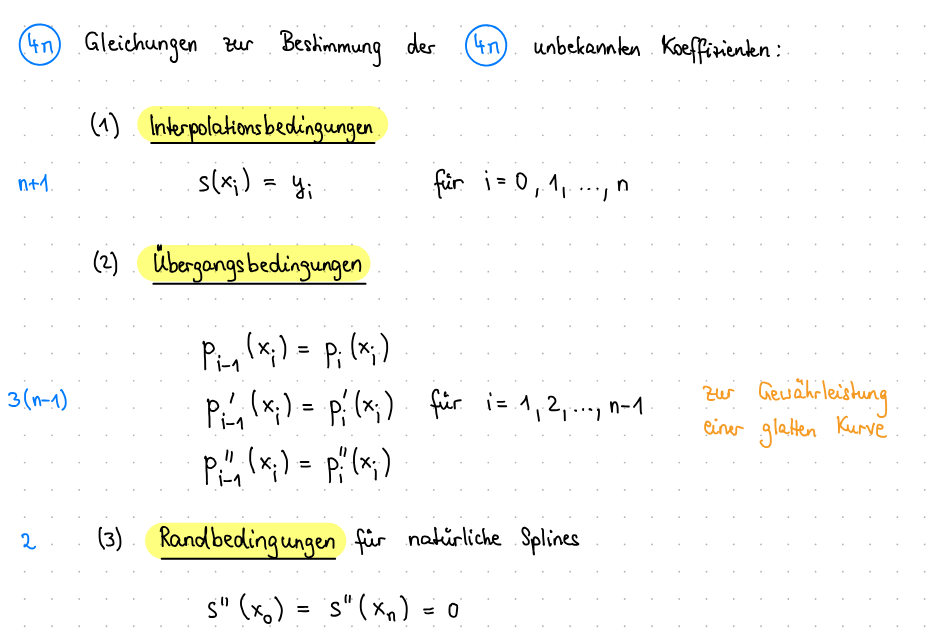 4n Gleichungen zur Bestimmung der 4n unbekannten Koeffizienten:
(1) Interpolationsbedingungen
n+1 s(xᵢ) = yᵢ für i = 0, 1, ..., n
(2) Übergangsbedingungen
pᵢ₋₁(xᵢ) = pᵢ(xᵢ)
3(n-1) pᵢ₋₁'(xᵢ) = pᵢ'(xᵢ) für i = 1, 2, ..., n-1 zur Gewährleistung
einer glatten Kurve
pᵢ₋₁''(xᵢ) = pᵢ''(xᵢ)
2 (3) Randbedingungen für natürliche Splines
s''(x₀) = s''(xₙ) = 0